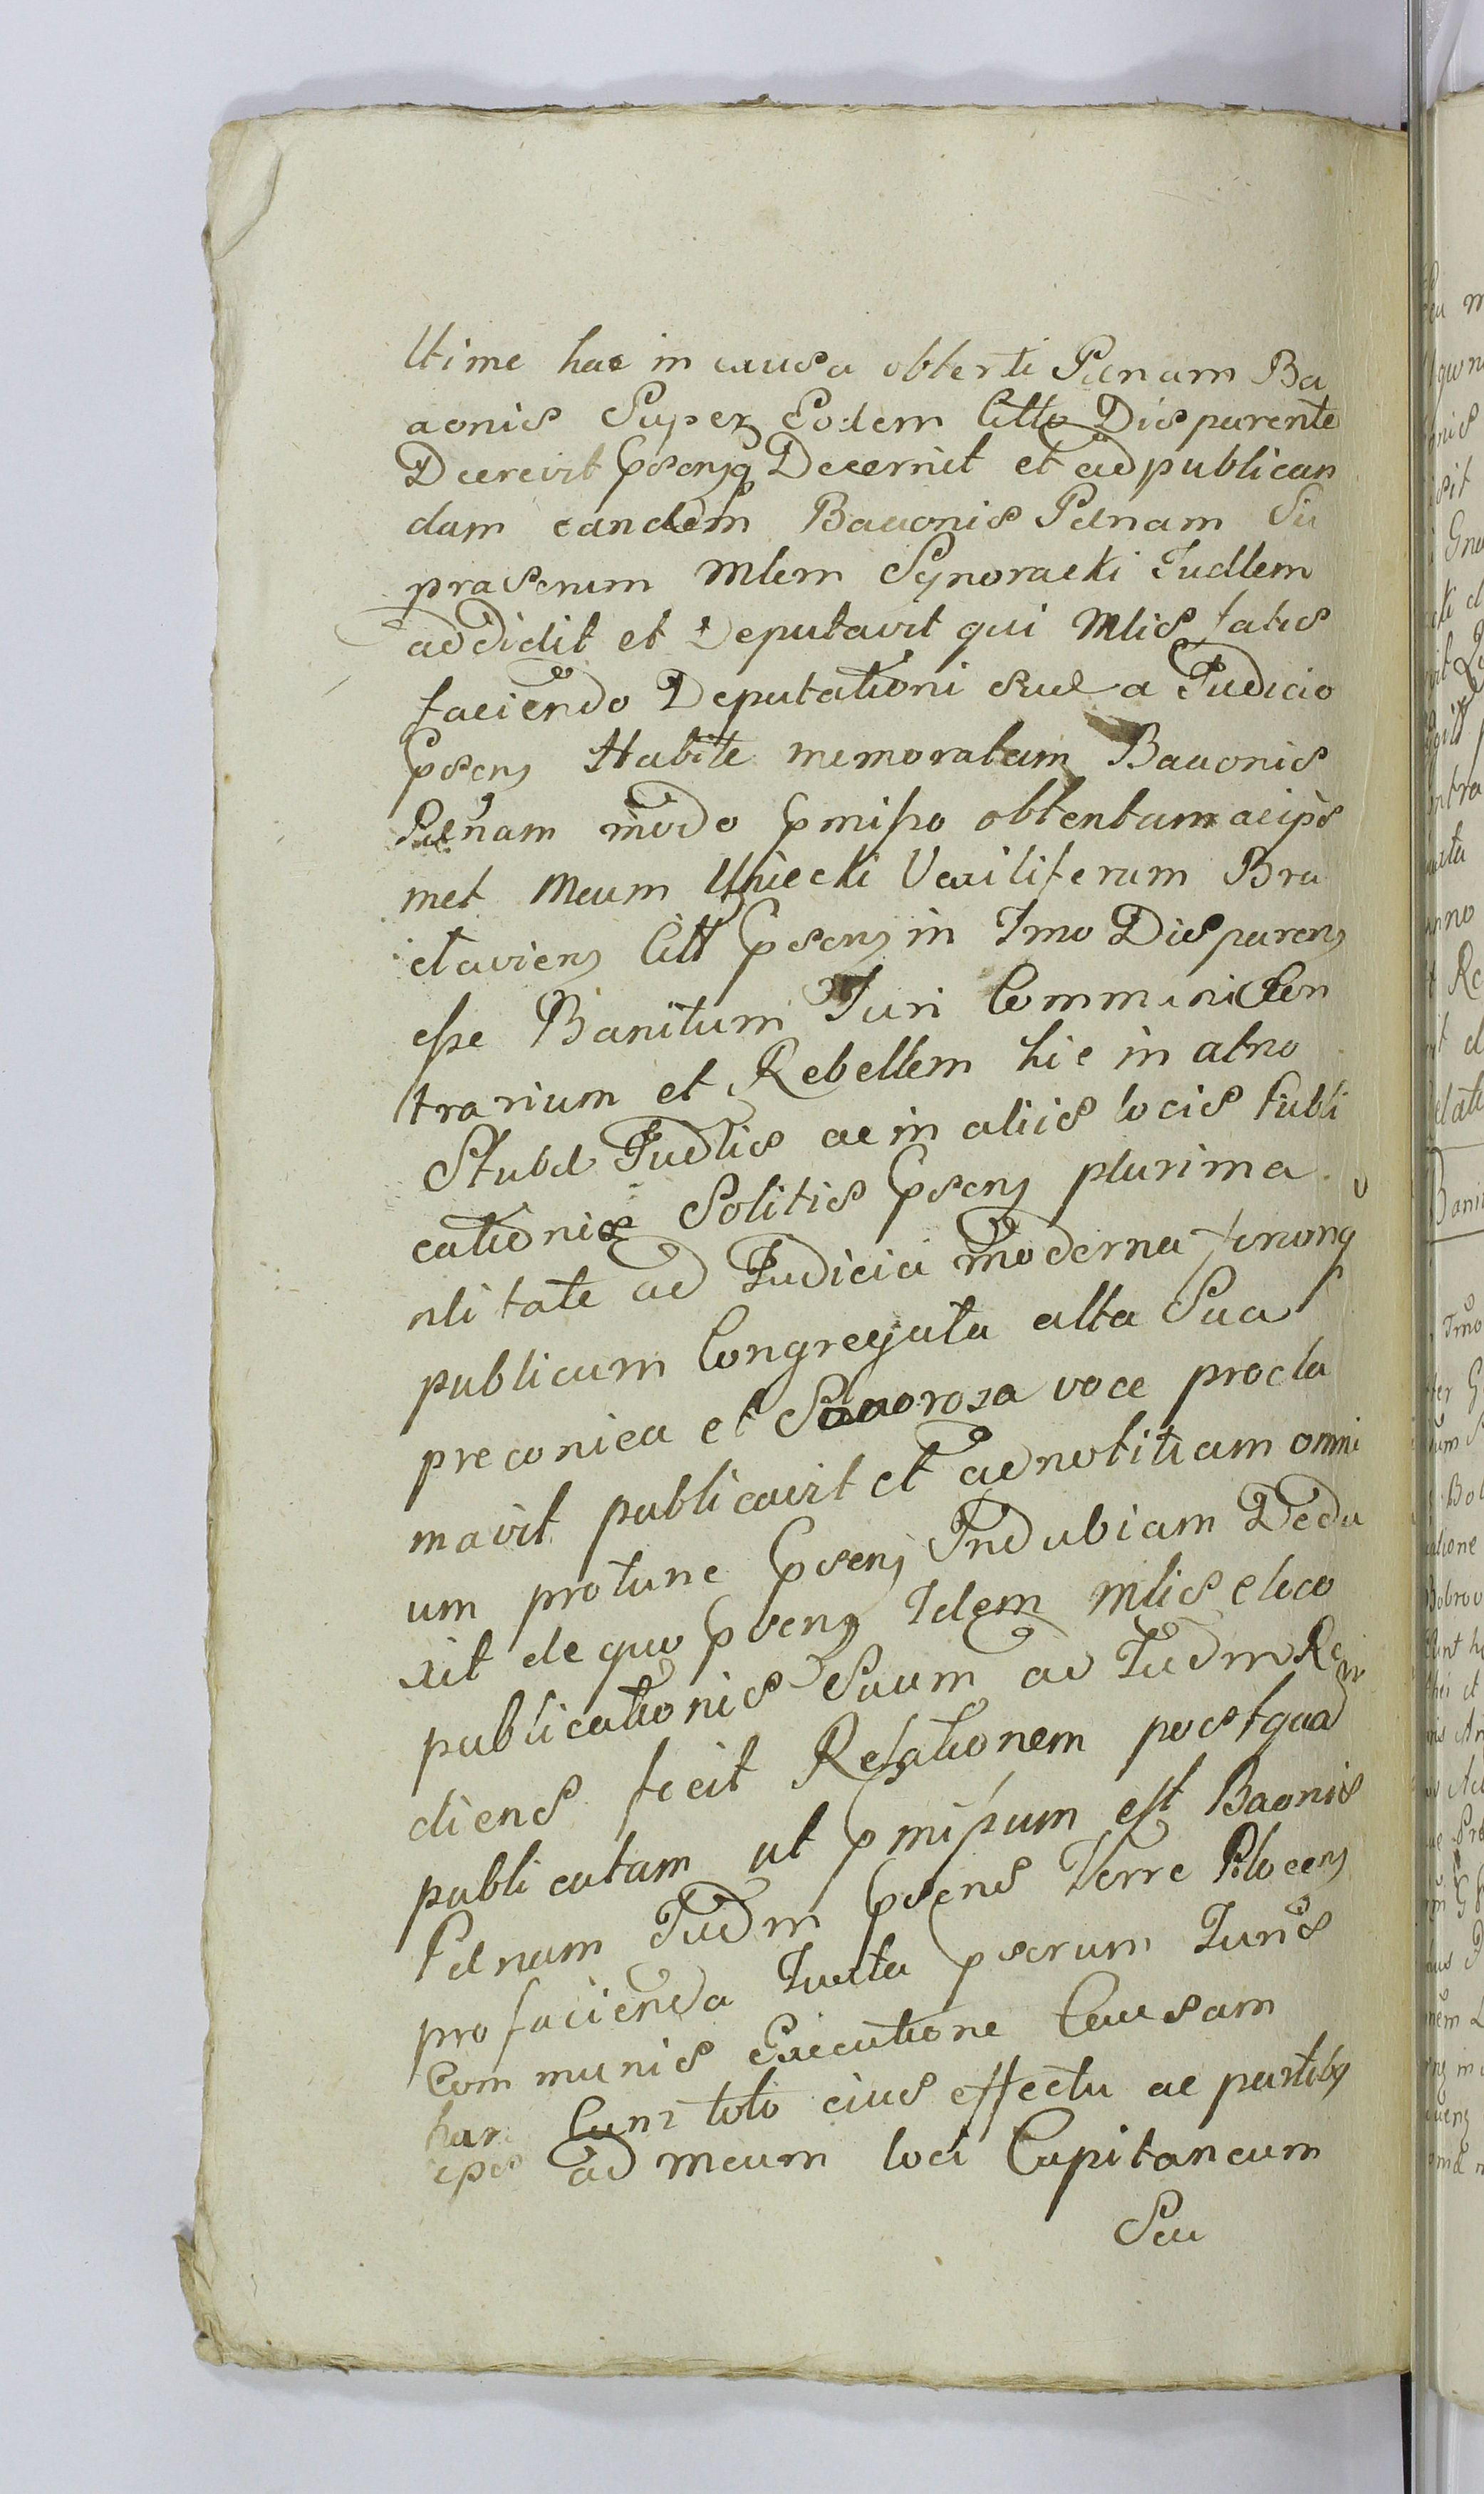 ltime hac in causa obtenti Pænam Ba
aonis Super Eodem Citto Disparente
Decrevit pssensq Decernit et ad publican
dam eandem Banonis Pænam Su
prascrum Mlem Synoracki Judlem
addidit et Deputavit qui Mlis satis
faciendo Deputationi suæ a Judicio
pssens Habitæ memoratam Banonis
Pænam modo pmisso obtentam ac ips
met Meum Uniecki Vexiliferum Bra
claviens Citt pssens in Tmo Disparens
esse Banitum Juri Communi Con
trarium et Rebellem hic in atrio
Stubæ Judlis ac in aliis locis Publi
cationis Solitis pssens plurima
nlitate ad Judicia moderna forumq
publicum Congregata alta Sua
preconica et Sonorosa voce procla
mavit publicavit et ad notitiam omni
um protunc pssens Indubiam Dedu
xit de quo pssens Idem Mlis eloco
publicationis Suum ad Judm Re
diens fecit Relationem post quad
publicatam ut pmissum est Baonis
Pænam Judm pssens Terre Plocens
pro facienda Juxta pscrum Juris
Communis Executione Causam
hanc Cum toto eius effectu ac partibq
ips ad Meum loci Capitaneum
Seu